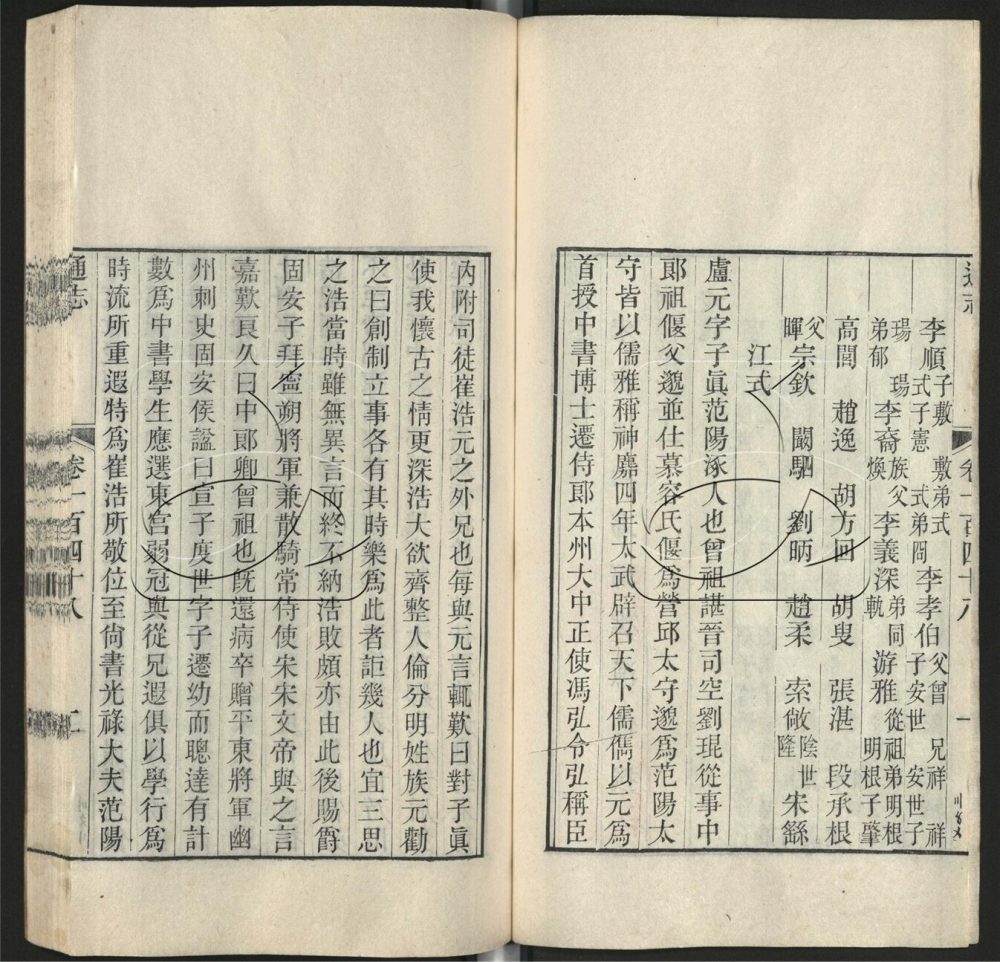 李順 子敷 敷弟式 李孝伯 父曾 兄祥 祥
瑒 式子憲 式弟冏 子安世 安世子
弟郁 瑒 李裔 族父 李義深 弟同 游雅 從祖弟明根
煥 軌 明根子肇
高閭 趙逸 胡方回 胡叟 張湛 段承根
父 宗欽 闞駰 劉昞 趙柔 索敞 陰世 宋繇
暉 隆
江式
盧元字子眞范陽涿人也曾祖諶晉司空劉琨從事中
郞祖偃父邈並仕慕容氏偃爲營邱太守邈爲范陽太
守皆以儒雅稱神䴥四年太武辟召天下儒儁以元爲
首授中書博士遷侍郞本州大中正使馮弘令弘稱臣
卷一百四十八 一
內附司徒崔浩元之外兄也每與元言輒歎曰對子眞
使我懷古之情更深浩大欲齊整人倫分明姓族元勸
之曰創制立事各有其時樂爲此者詎幾人也宜三思
之浩當時雖無異言而終不納浩敗頗亦由此後賜爵
固安子拜寧朔將軍兼散騎常侍使宋宋文帝與之言
嘉歎良久曰中郞卿曾祖也旣還病卒贈平東將軍幽
州刺史固安侯諡曰宣子度世字子遷幼而聰達有計
數爲中書學生應選東宮弱冠與從兄遐俱以學行爲
時流所重遐特爲崔浩所敬位至尙書光祿大夫范陽
通志 卷一百四十八 二